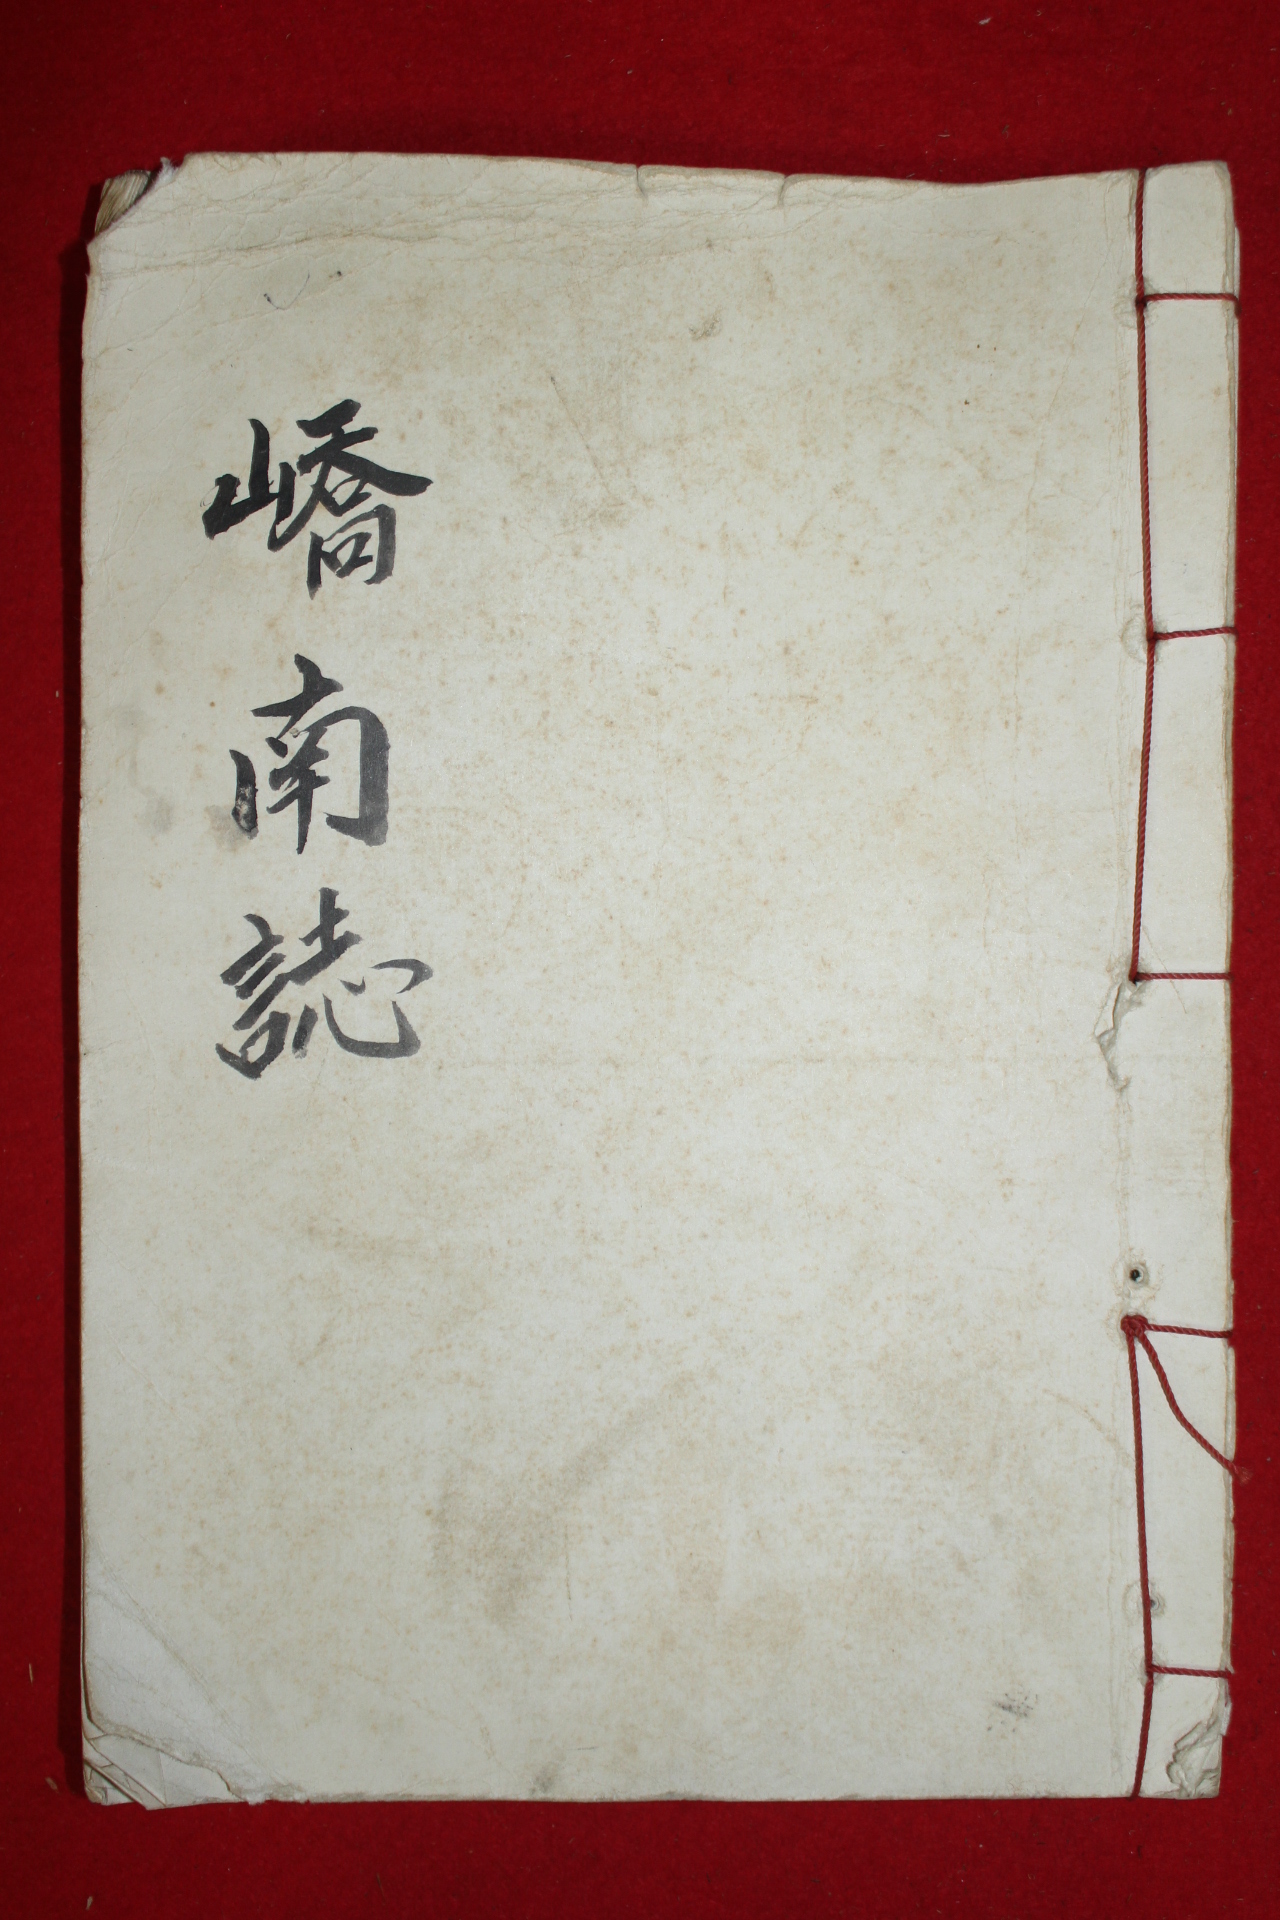 嶠南誌